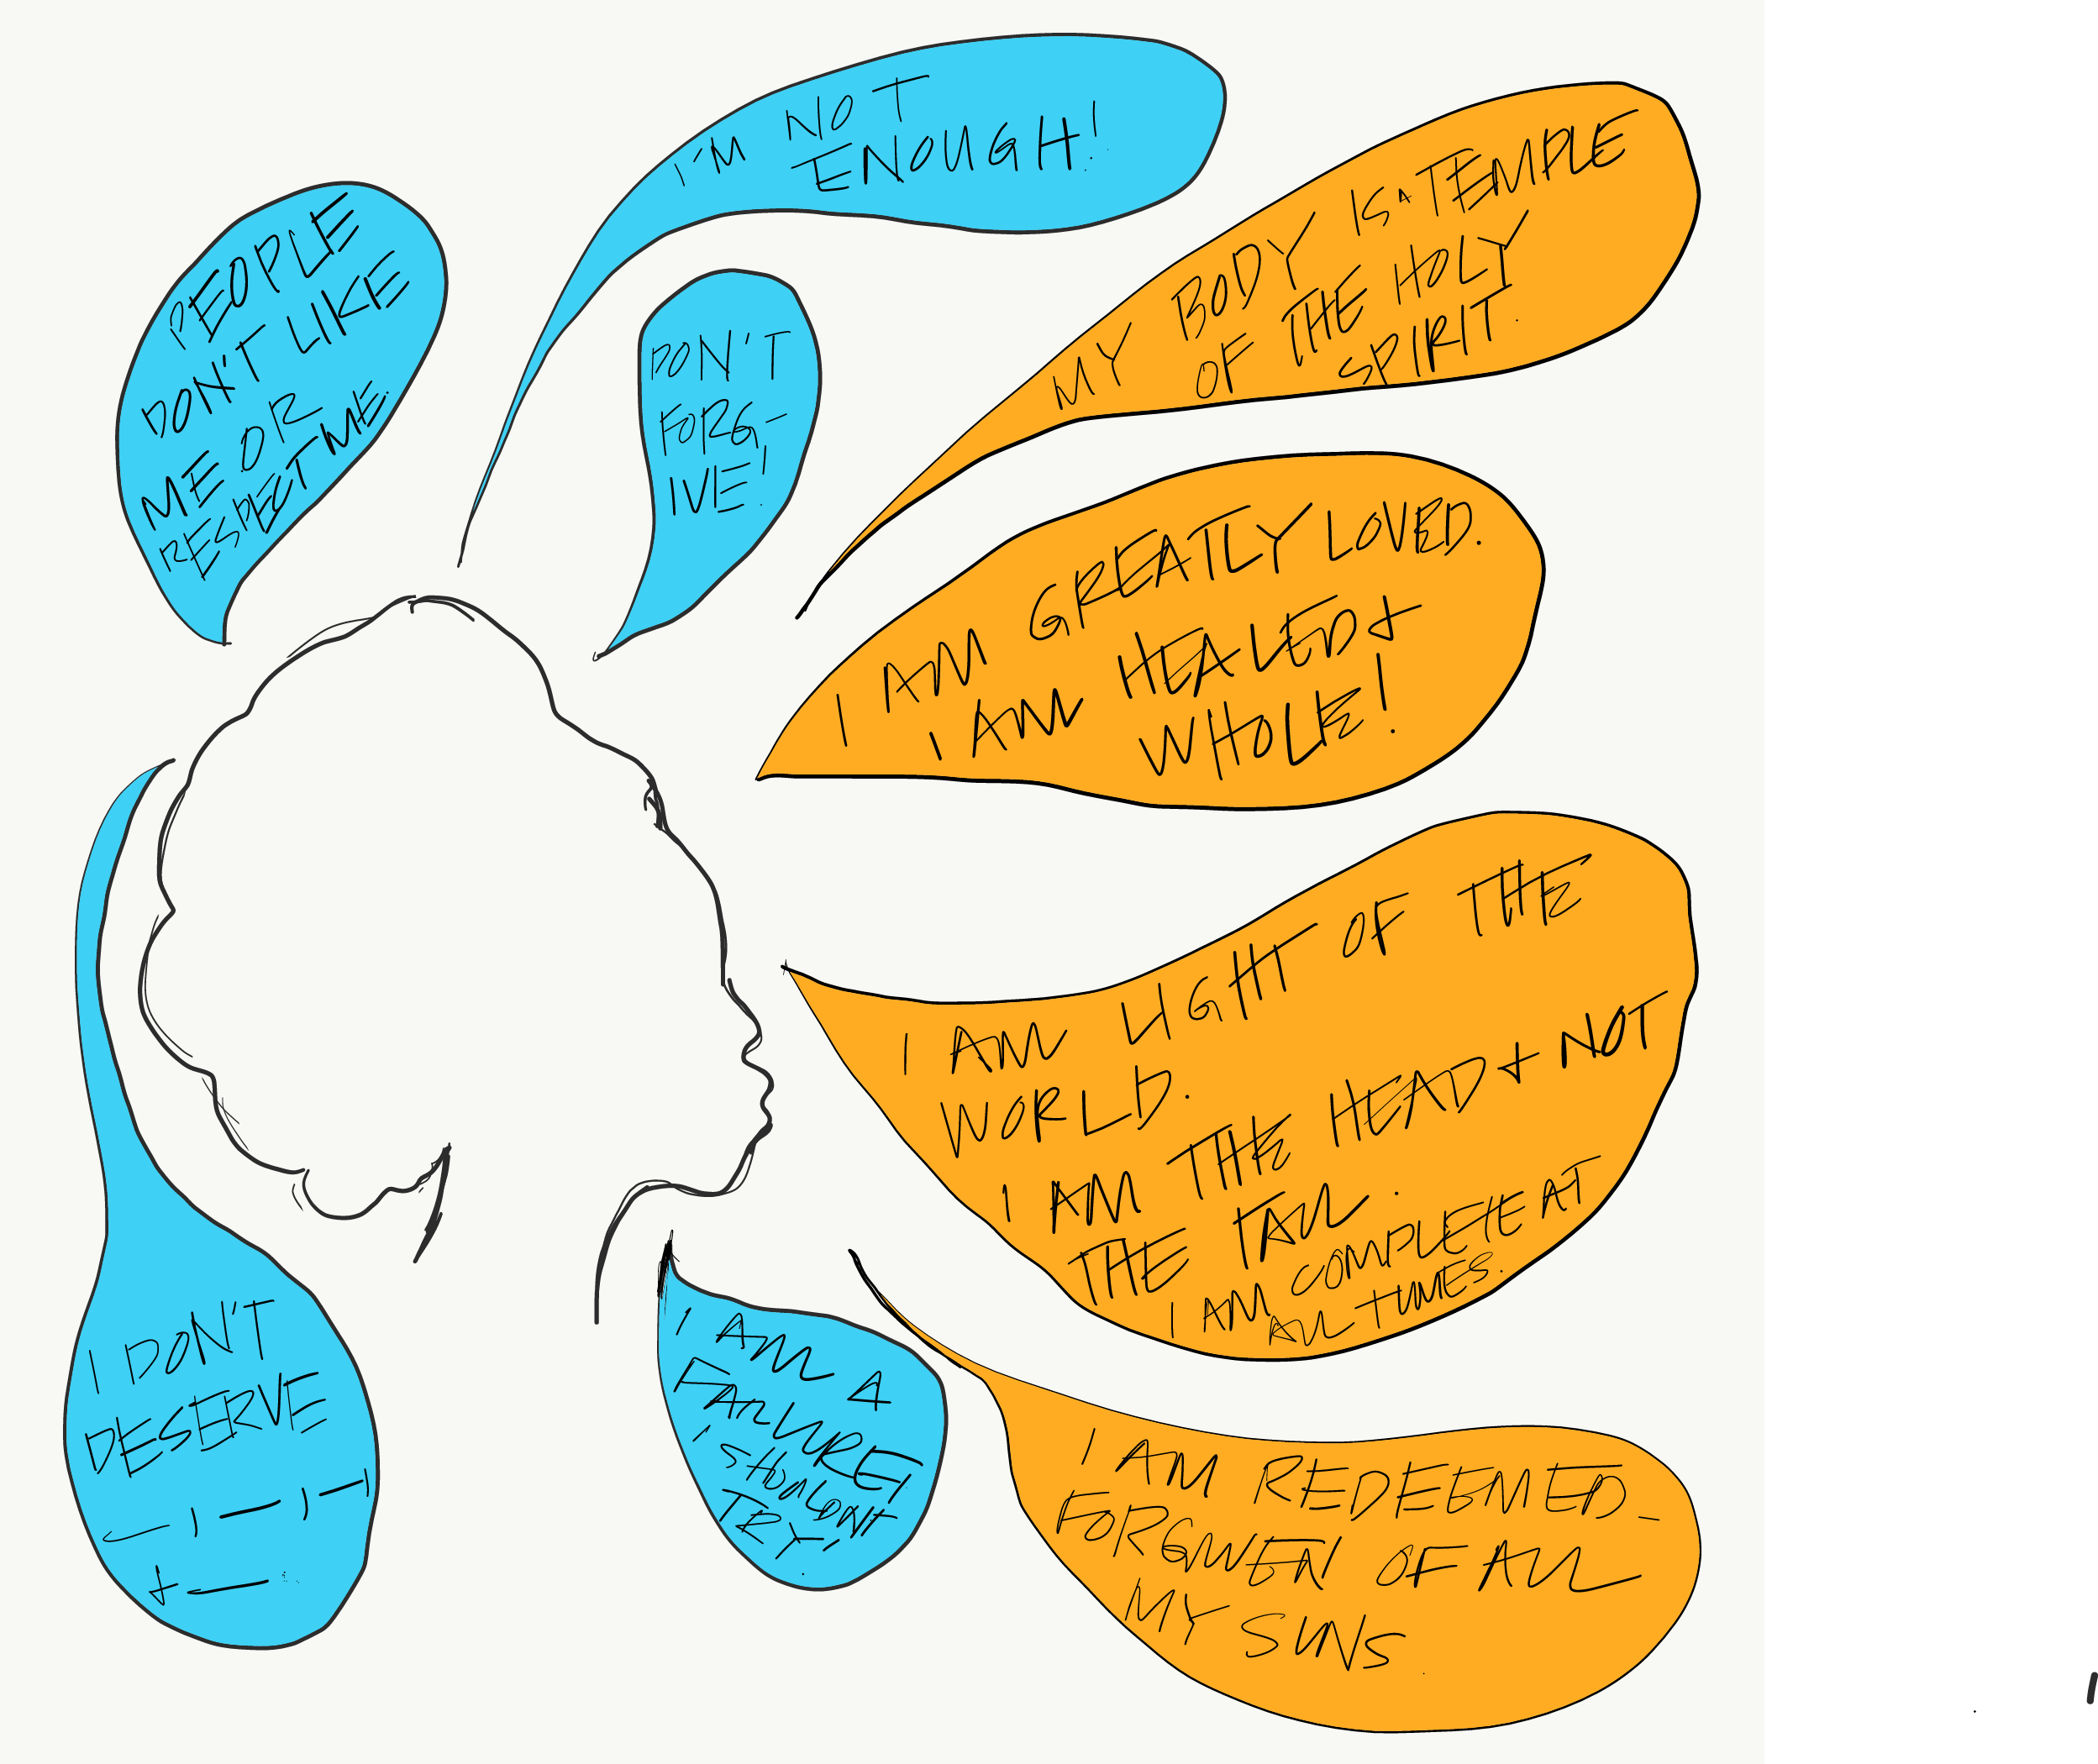 I'M NOT
ENOUGH!
PEOPLE
DON'T LIKE
ME OR
RESPECT ME.
DON'T
FORGI-
VE!
MY BODY IS A TEMPLE
OF THE HOLY
SPIRIT.
I AM GREATLY LOVED.
I AM HEALED +
WHOLE!
I AM LIGHT OF THE
WORLD.
I AM THE HEAD + NOT
THE TAIL.
I AM COMPLETE AT
ALL TIMES.
I DON'T
DESERVE
I AM A
FAILURE,
I SHOULDN'T
TRY.
I AM REDEEMED_
FORGIVEN OF ALL
MY SINS